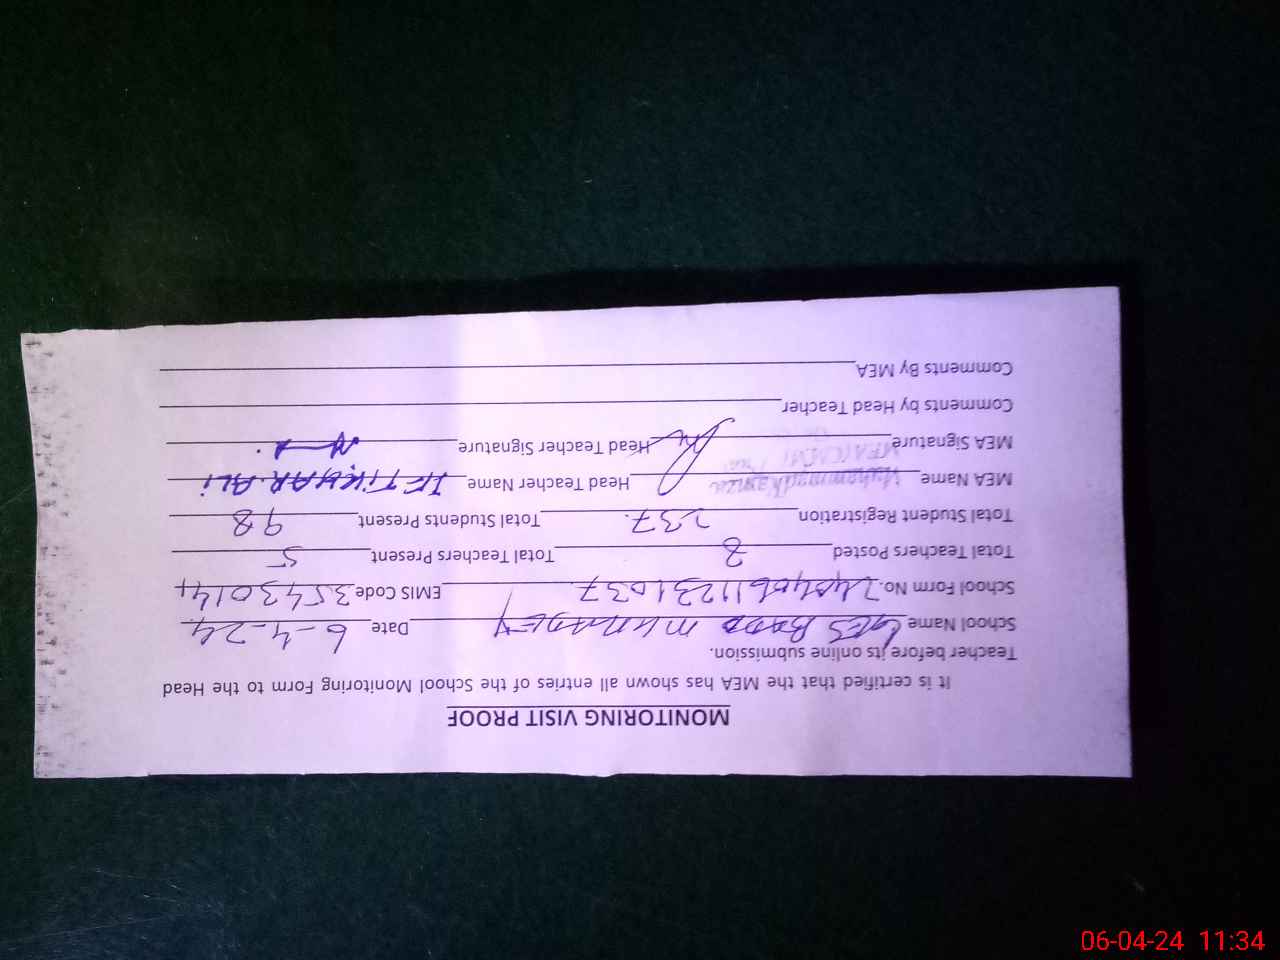 MONITORING VISIT PROOF
It is certified that the MEA has shown all entries of the School Monitoring Form to the Head
Teacher before its online submission.
School Name Date 6-4-24
School Form No. EMIS Code 35430144
Total Teachers Posted 8 Total Teachers Present 5
Total Student Registration 237. Total Students Present 98
MEA Name Head Teacher Name IFTIKHAR.ALi
MEA Signature Head Teacher Signature
Comments by Head Teacher
Comments By MEA
06-04-24 11:34